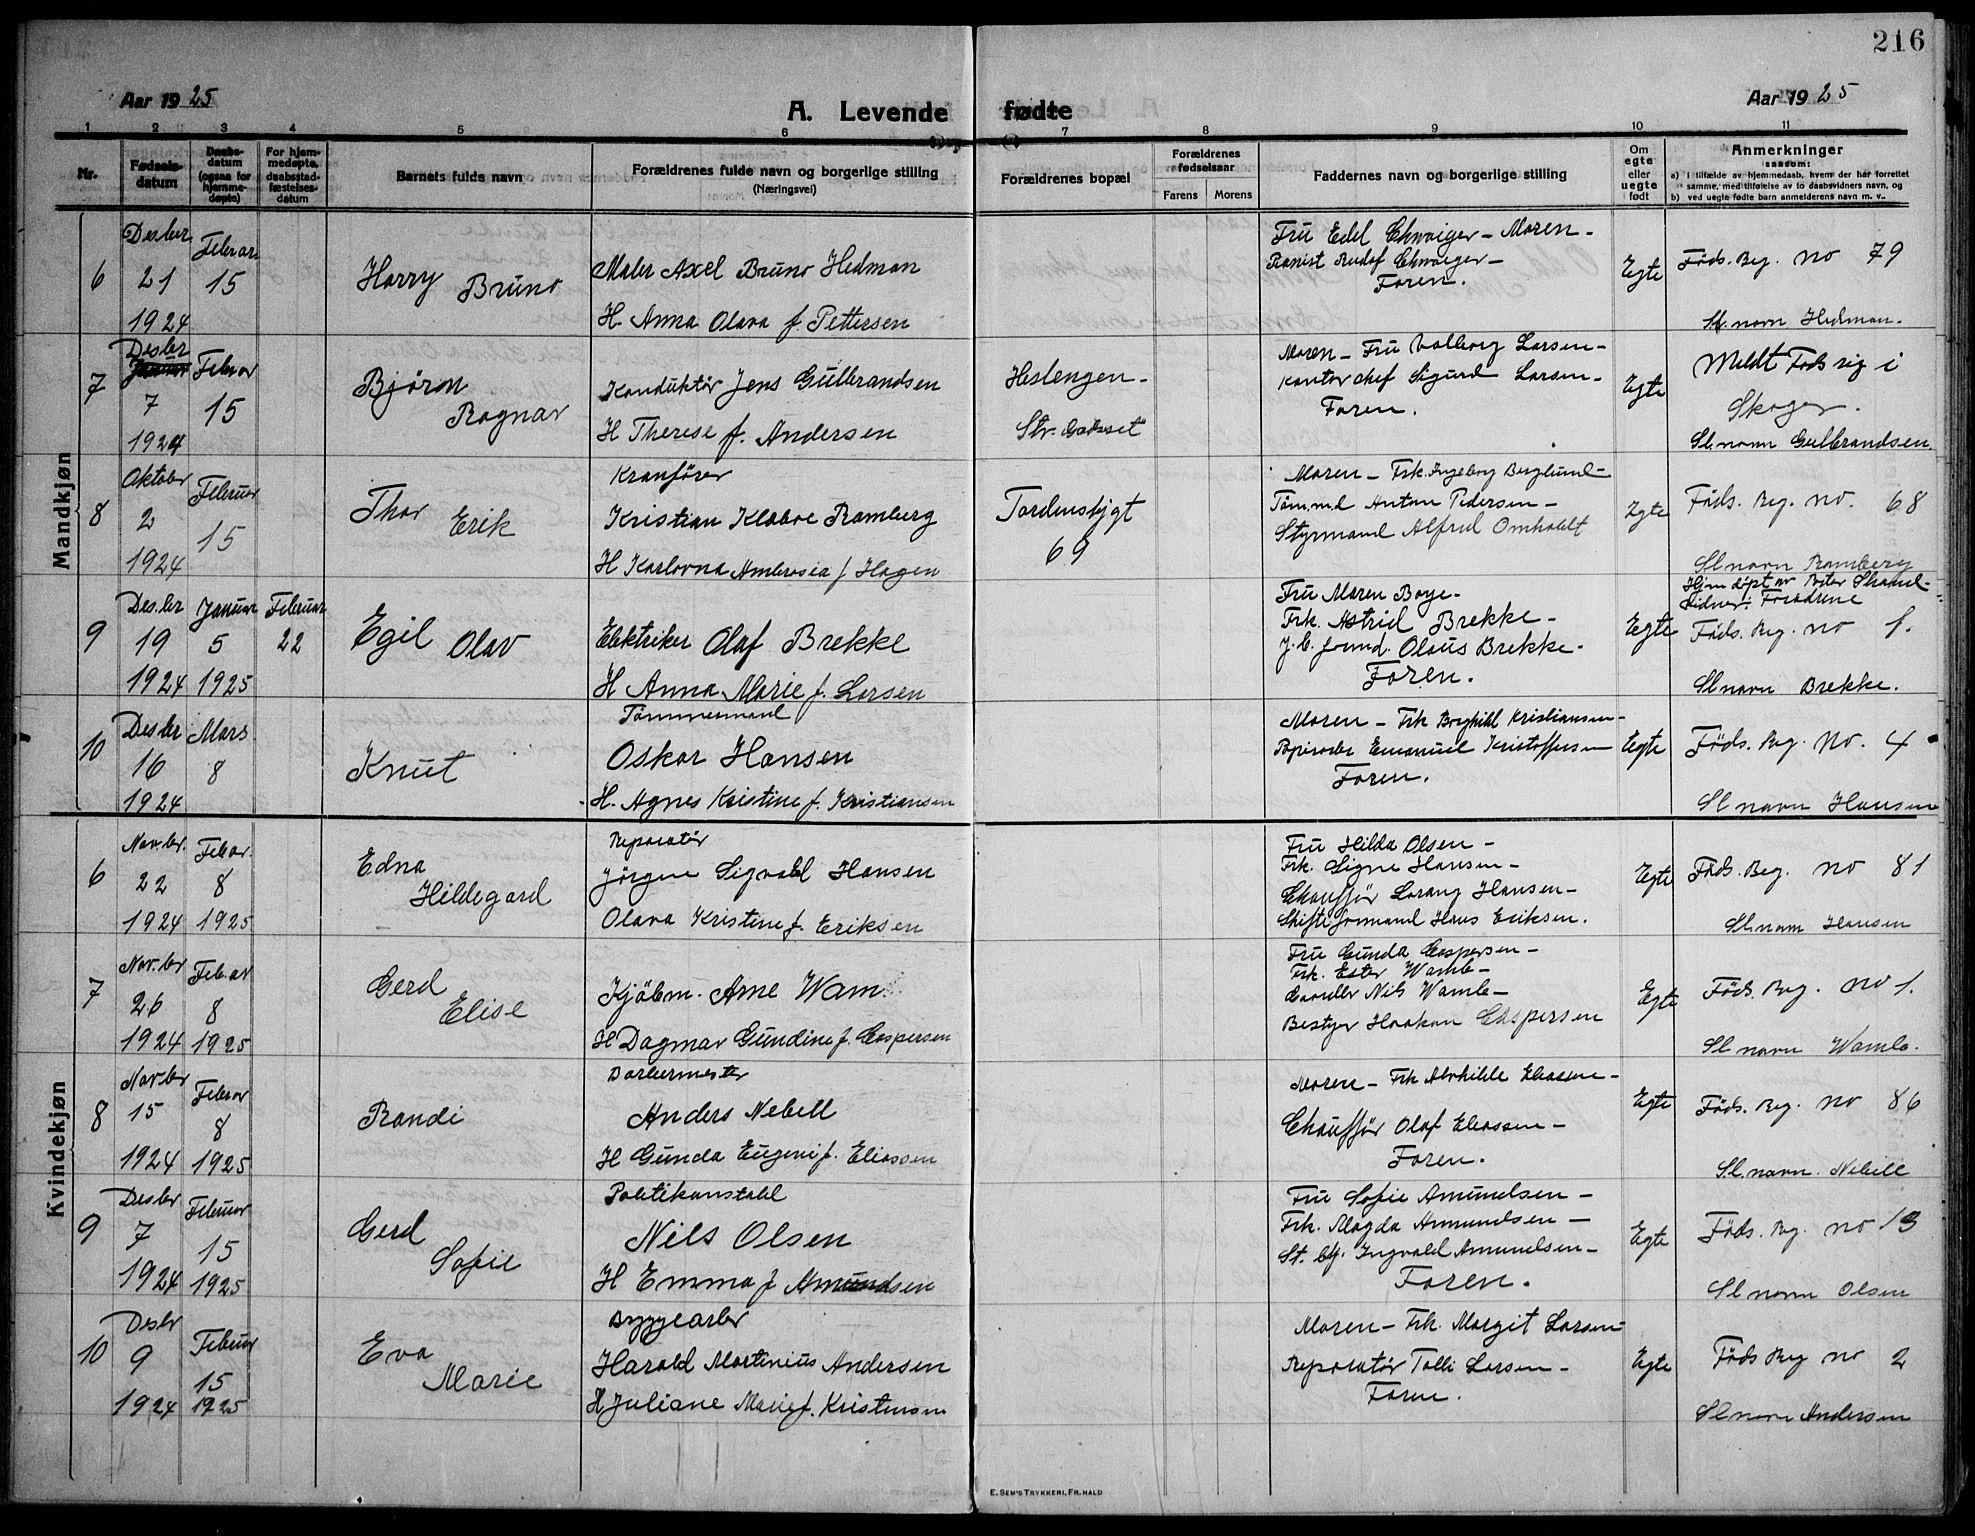 216
Aar 1925
A. Levende fødte
Aar 1925
1 2 3 4 5 6 7 8 9 10 11
Nr.
Fødsels-
datum
Daabs-
datum
(ogsaa for
hjemme-
døpte)
For hjem-
medøpte,
daabsstad-
fæstelses-
datum
Barnets fulde navn
Forældrenes fulde navn og borgerlige stilling
(Næringsvei)
Forældrenes bopæl
Forældrenes
fødselsaar
Farens Morens
Faddernes navn og borgerlige stilling
Om
egte
eller
uegte
født
Anmerkninger
saasom:
a) i tilfælde av hjemmedaab, hvem der har forrettet
samme, med tilføielse av to daabsvidners navn, og
b) ved uegte fødte barn anmelderens navn m. v.
Mandkjøn
6
Desber
21
1924
Februar
15
Harry Bruno
Maler Axel Bruno Hedman
H. Anna Olava f. Pettersen
Fru Edel Chwoiger - Moren -
Pianist Rudof Chwoiger -
Faren.
Egte
Føds. Reg. no 79
Sl. navn Hedman.
7
Desber
7
1924
Februar
15
Bjørn
Ragnar
Konduktør Jens Gulbrandsen
H Therese f. Andersen
Heslengen -
Str. Godset
Moren - Fru Valborg Larsen -
Kontorchef Sigurd Larsen -
Faren.
Egte
Meldt Føds reg i
Skoger.
Sl. navn Gulbrandsen.
8
Oktober
2
1924
Februar
15
Thor Erik
Kranfører
Kristian Klaboe Ramberg
H Karlovna Ambrosia f Hagen
Tordenskjgt
69
Moren - Frk. Ingeborg Berglund -
Tømmd Anton Pedersen -
Styrmand Alfred Omholdt
Egte
Føds. Reg. no. 68
Sl navn Ramberg
9
Des.br
19
1924
Januar
5
1925
Februar
22
Egil Olav
Elektriker Olaf Brekke
H Anna Marie f. Larsen
Fru Maren Boye -
Frk. Astrid Brekke -
Olaus Brekke -
Faren.
Egte
Hjem døpt av
Vidner: Forældrene
Føds. Reg. no 1.
Sl navn Brekke.
10
Desber
16
1924
Mars
8
Knut
Tømmermand
Oskar Hansen
H. Agnes Kristine f. Kristiansen
Moren - Frk Borghild Kristiansen -
Emanuel Kristoffersen
Faren.
Egte
Føds. Reg. No. 4
Sl navn Hansen
Kvindekjøn
6
Nov.br.
22
1924
Feb.ar.
8
1925
Edna
Hildegard
Reparatør
Jørgen Sigvald Hansen
Olava Kristine f. Eriksen
Fru Hilda Olsen -
Frk. Signe Hansen -
Chauffør Lorang Hansen -
Skifteformand Hans Eriksen.
Egte
Føds. Reg. no 81
Sl. navn Hansen
7
Nov.ber
26
1924
Feb.ar
8
1925
Gerd
Elise
Kjøbm. Arne Wam
H Dagmar Gundine f. Caspersen
Fru Gunda Caspersen -
Frk. Ester Wamb -
Nils Wamb -
Bestyer Haakon Caspersen
Egte
Føds. Reg. no 1.
Sl navn Wamb.
8
Nov.ber
15
1924
Februar
8
1925
Randi
Barbermester
Anders Nebell
H Gunda Eugenie f. Eliassen
Moren - Frk Alvhilde Eliassen -
Chauffør Olaf Eliassen -
Faren.
Egte
Føds. Reg. no 86
Sl. navn. Nebell
9
Desber
7
1924
Februar
15
1925
Gerd
Sofie
Politikonstabl
Nils Olsen
H Emma f Amundsen
Fru Sofie Amundsen -
Frk. Magda Amundsen -
Ingvald Amundsen -
Faren.
Egte
Føds. Reg. no 13
Sl navn Olsen
10
Desbr
9
1924
Februar
15
1925
Eva
Marie
Byggearber
Harald Martinius Andersen
H Juliane Marie f. Kristensen
Moren - Frk. Margit Larsen
Reparatør Tolli Larsen -
Faren.
Egte
Føds Reg no 2
Sl navn Andersen
E. SEM'S TRYKKERI, FR.HALD